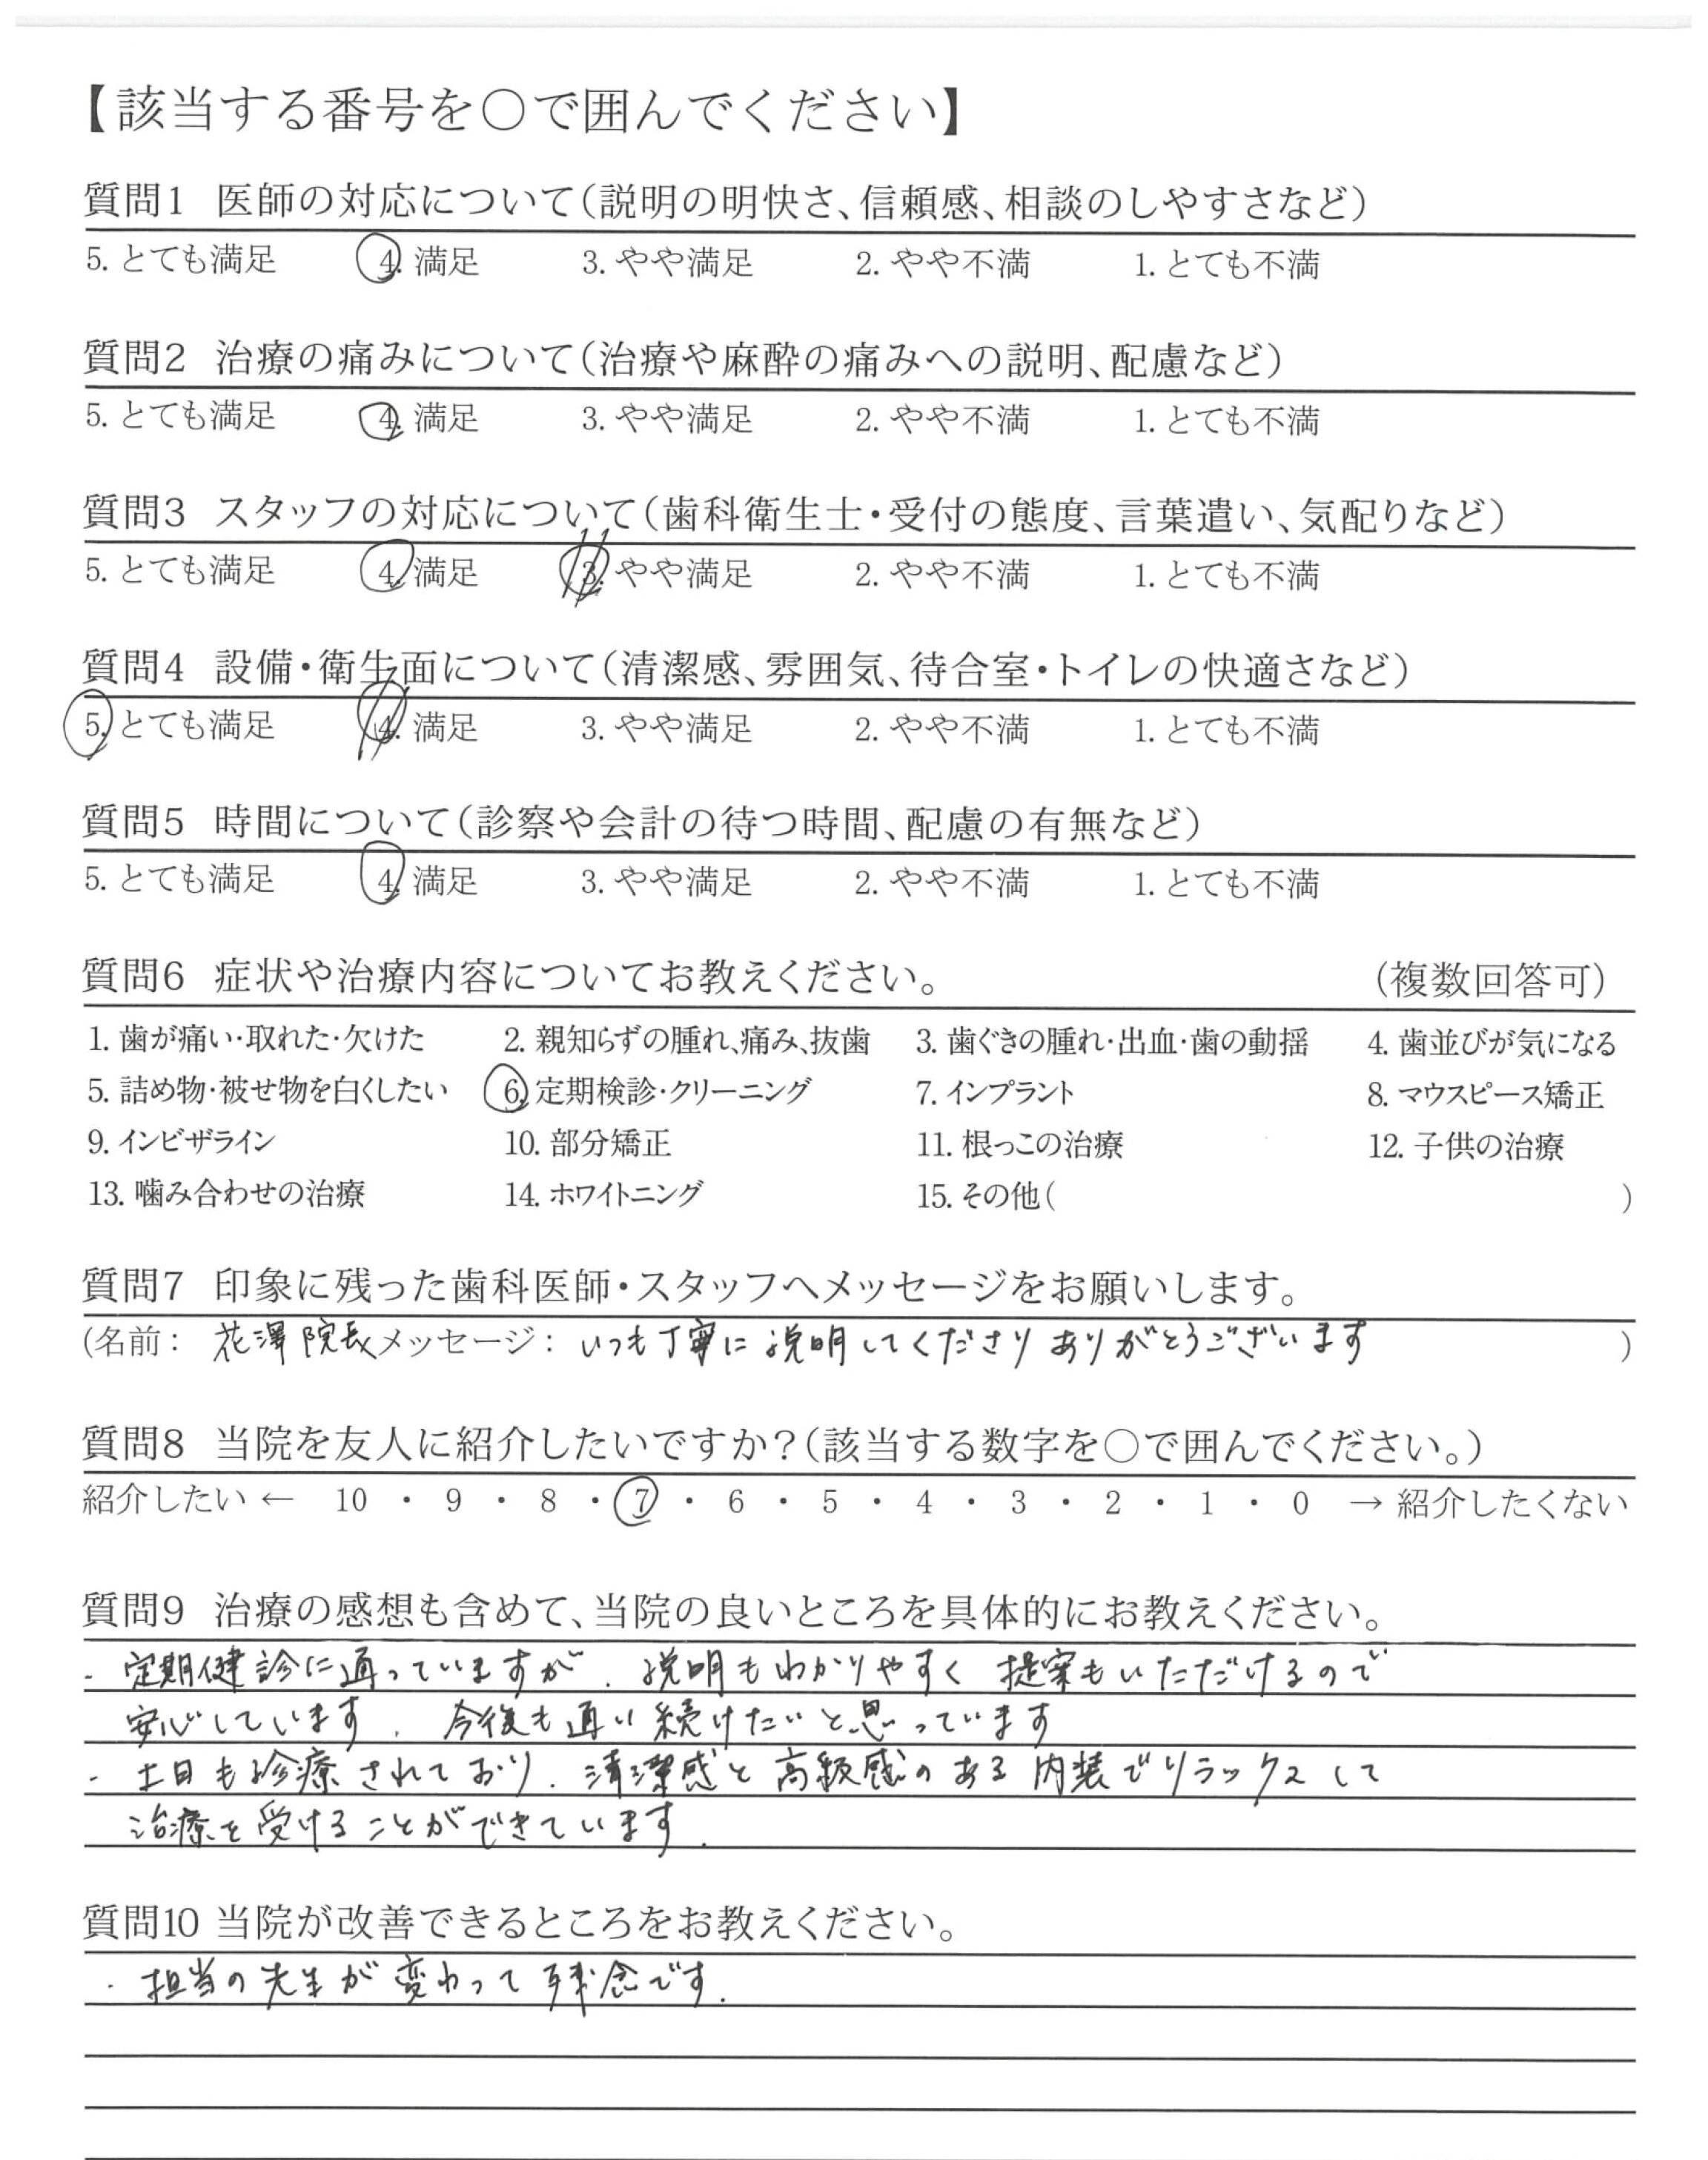 【該当する番号を○で囲んでください】
質問1 医師の対応について(説明の明快さ、信頼感、相談のしやすさなど)
5. とても満足 4. 満足 3. やや満足 2. やや不満 1. とても不満
質問2 治療の痛みについて(治療や麻酔の痛みへの説明、配慮など)
5. とても満足 4. 満足 3. やや満足 2. やや不満 1. とても不満
質問3 スタッフの対応について(歯科衛生士・受付の態度、言葉遣い、気配りなど)
5. とても満足 4. 満足 3. やや満足 2. やや不満 1. とても不満
質問4 設備・衛生面について(清潔感、雰囲気、待合室・トイレの快適さなど)
5. とても満足 4. 満足 3. やや満足 2. やや不満 1. とても不満
質問5 時間について(診察や会計の待つ時間、配慮の有無など)
5. とても満足 4. 満足 3. やや満足 2. やや不満 1. とても不満
質問6 症状や治療内容についてお教えください。 (複数回答可)
1. 歯が痛い・取れた・欠けた 2. 親知らずの腫れ、痛み、抜歯 3. 歯ぐきの腫れ・出血・歯の動揺 4. 歯並びが気になる
5. 詰め物・被せ物を白くしたい 6. 定期検診・クリーニング 7. インプラント 8. マウスピース矯正
9. インビザライン 10. 部分矯正 11. 根っこの治療 12. 子供の治療
13. 噛み合わせの治療 14. ホワイトニング 15. その他( )
質問7 印象に残った歯科医師・スタッフへメッセージをお願いします。
(名前: 花澤院長 メッセージ: いつも丁寧に説明してくださりありがとうございます )
質問8 当院を友人に紹介したいですか?(該当する数字を○で囲んでください。)
紹介したい ← 10 ・ 9 ・ 8 ・ 7 ・ 6 ・ 5 ・ 4 ・ 3 ・ 2 ・ 1 ・ 0 → 紹介したくない
質問9 治療の感想も含めて、当院の良いところを具体的にお教えください。
・定期健診に通っていますが、説明もわかりやすく提案もいただけるので
安心しています。今後も通い続けたいと思っています
・土日も診療されており、清潔感と高級感のある内装でリラックスして
治療を受けることができています。
質問10 当院が改善できるところをお教えください。
・担当の先生が変わって残念です。